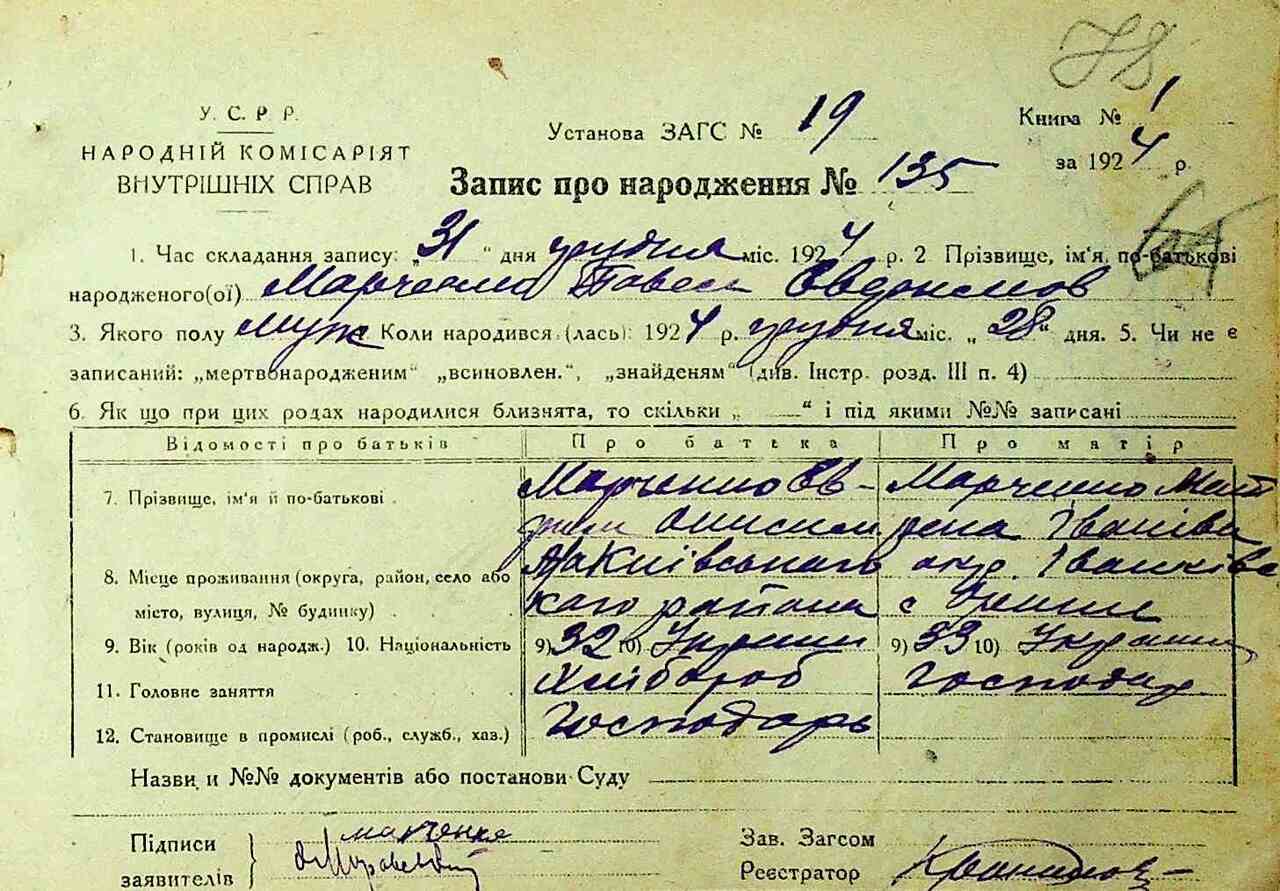 78
У. С. Р. Р.
НАРОДНІЙ КОМІСАРІЯТ
ВНУТРІШНІХ СПРАВ
Установа ЗАГС № 19
Книга № 1
за 1924 р.
Запис про народження № 135
1. Час складання запису: „31“ дня грудня міс. 1924 р. 2 Прізвище, ім'я, по-батькові
народженого(ої) Марченко Павел Евдокимов
3. Якого полу муж Коли народився (лась): 1924 р. грудня міс. „28“ дня. 5. Чи не є
записаний: „мертвонародженим“ „всиновлен.“, „знайденям“ (див. Інстр. розд. III п. 4)
6. Як що при цих родах народилися близнята, то скільки „ —“ і під якими №№ записані
Відомості про батьків Про батька Про матір
7. Прізвище, ім'я й по-батькові Марченко Ев- Марченко Мот
рена Іванівна
8. Місце проживання (округа, район, село або Київського окр. Іванківс
місто, вулиця, № будинку) кого района с
9. Вік (років од народж.) 10. Національність 9) 32 10) Украин 9) 33 10) Украин
11. Головне заняття Хлібороб Господар
12. Становище в промислі (роб., служб., хаз.) Господарь
Назви и №№ документів або постанови Суду
Підписи Марченко Зав. Загсом
заявителів Реєстратор